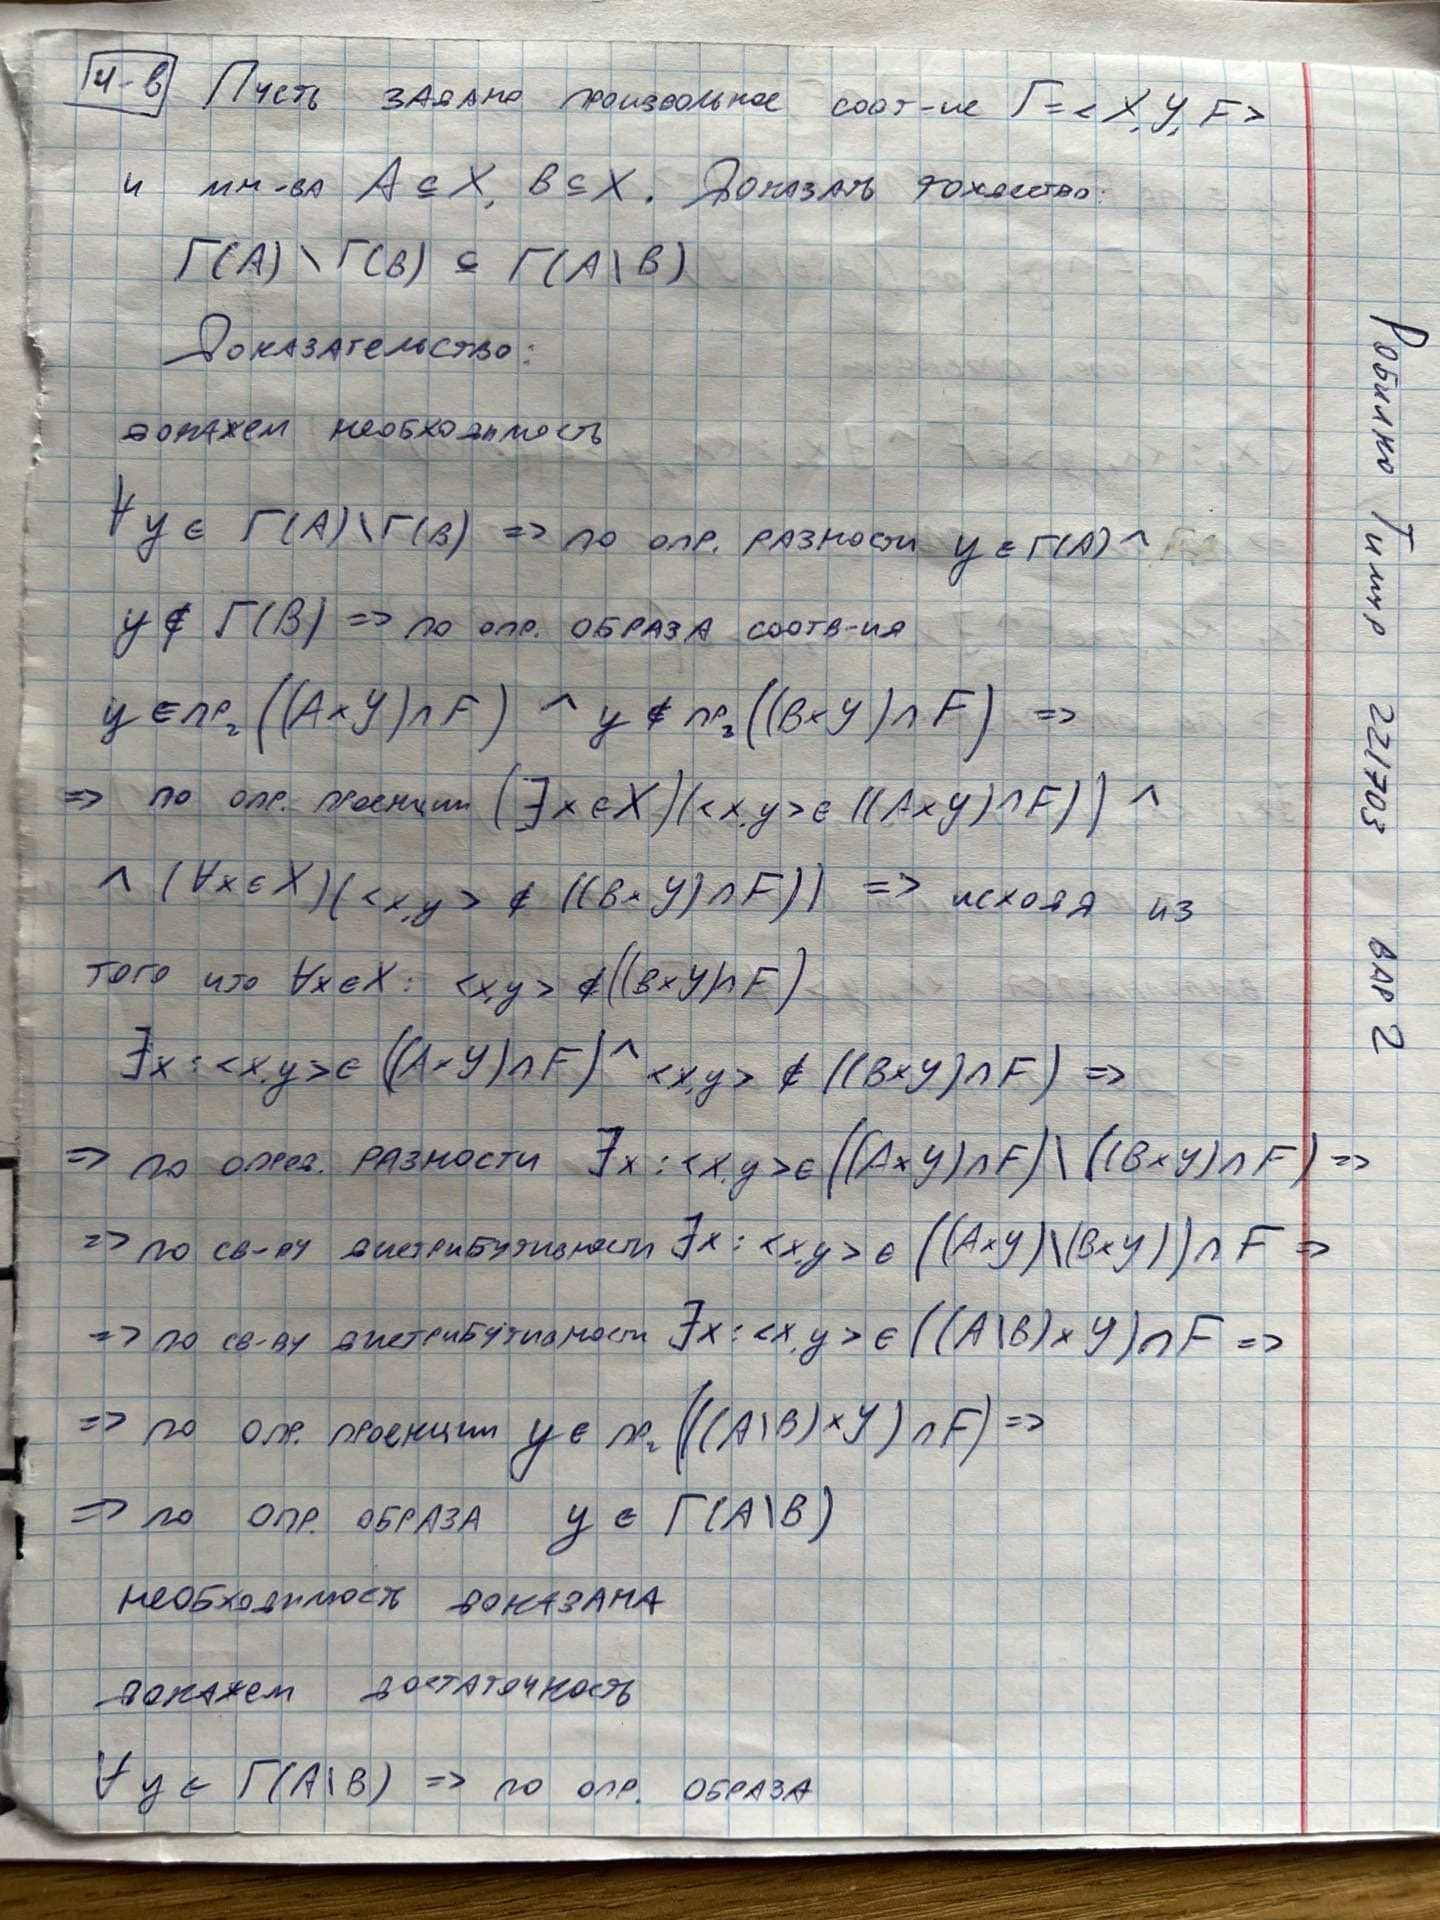 4-в Пусть задано произвольное соот-ие Г=<X,Y,F>
и мн-ва A⊆X, B⊆X. Доказать тождество:
Г(A)\Г(B) ⊆ Г(A\B)
Доказательство:
докажем необходимость
∀y∈ Г(A)\Г(B) => по опр. разности y∈Г(A) ^
y∉ Г(B) => по опр. образа соотв-ия
y∈пр₂((A×Y)∩F) ^ y∉пр₂((B×Y)∩F) =>
=> по опр. проекции (∃x∈X)(<x,y>∈((A×Y)∩F)) ^
^ (∀x∈X)(<x,y>∉((B×Y)∩F)) => исходя из
того что ∀x∈X: <x,y>∉((B×Y)∩F)
∃x:<x,y>∈((A×Y)∩F)^<x,y>∉((B×Y)∩F) =>
=> по опред. разности ∃x:<x,y>∈((A×Y)∩F)\((B×Y)∩F) =>
=> по св-ву дистрибутивности ∃x:<x,y>∈((A×Y)\(B×Y))∩F =>
=> по св-ву дистрибутивности ∃x:<x,y>∈((A\B)×Y)∩F =>
=> по опр. проекции y∈пр₂(((A\B)×Y)∩F) =>
=> по опр. образа y∈Г(A\B)
необходимость доказана
докажем достаточность
∀y∈Г(A\B) => по опр. образа
Робилко Тимур 221703 вар 2